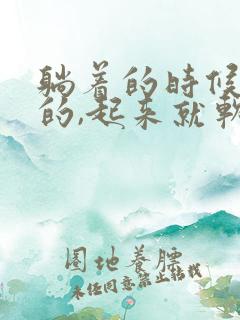 躺着的时候
的,起来就软
圈地养膘
未经同意禁止转载